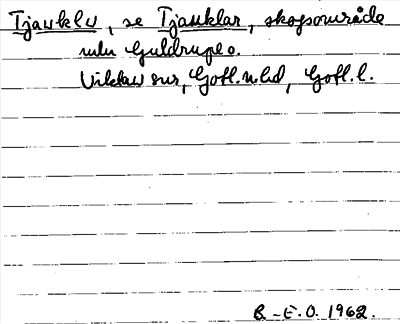 Tjauklu, se Tjauklar, skogsområde
Guldrupe
Viklau sn, Gotl. n. hd, Gotl. l.
B.-E.O. 1962.